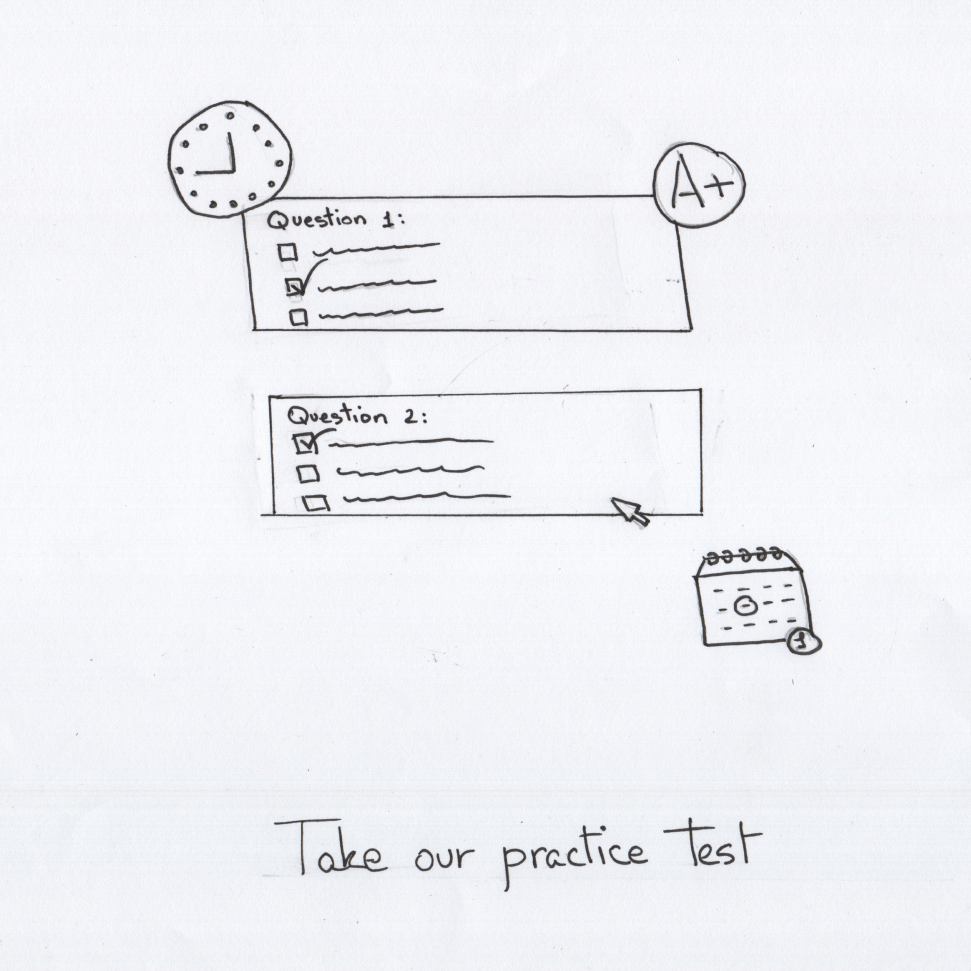 A+
Question 1:
Question 2:
1
Take our practice test